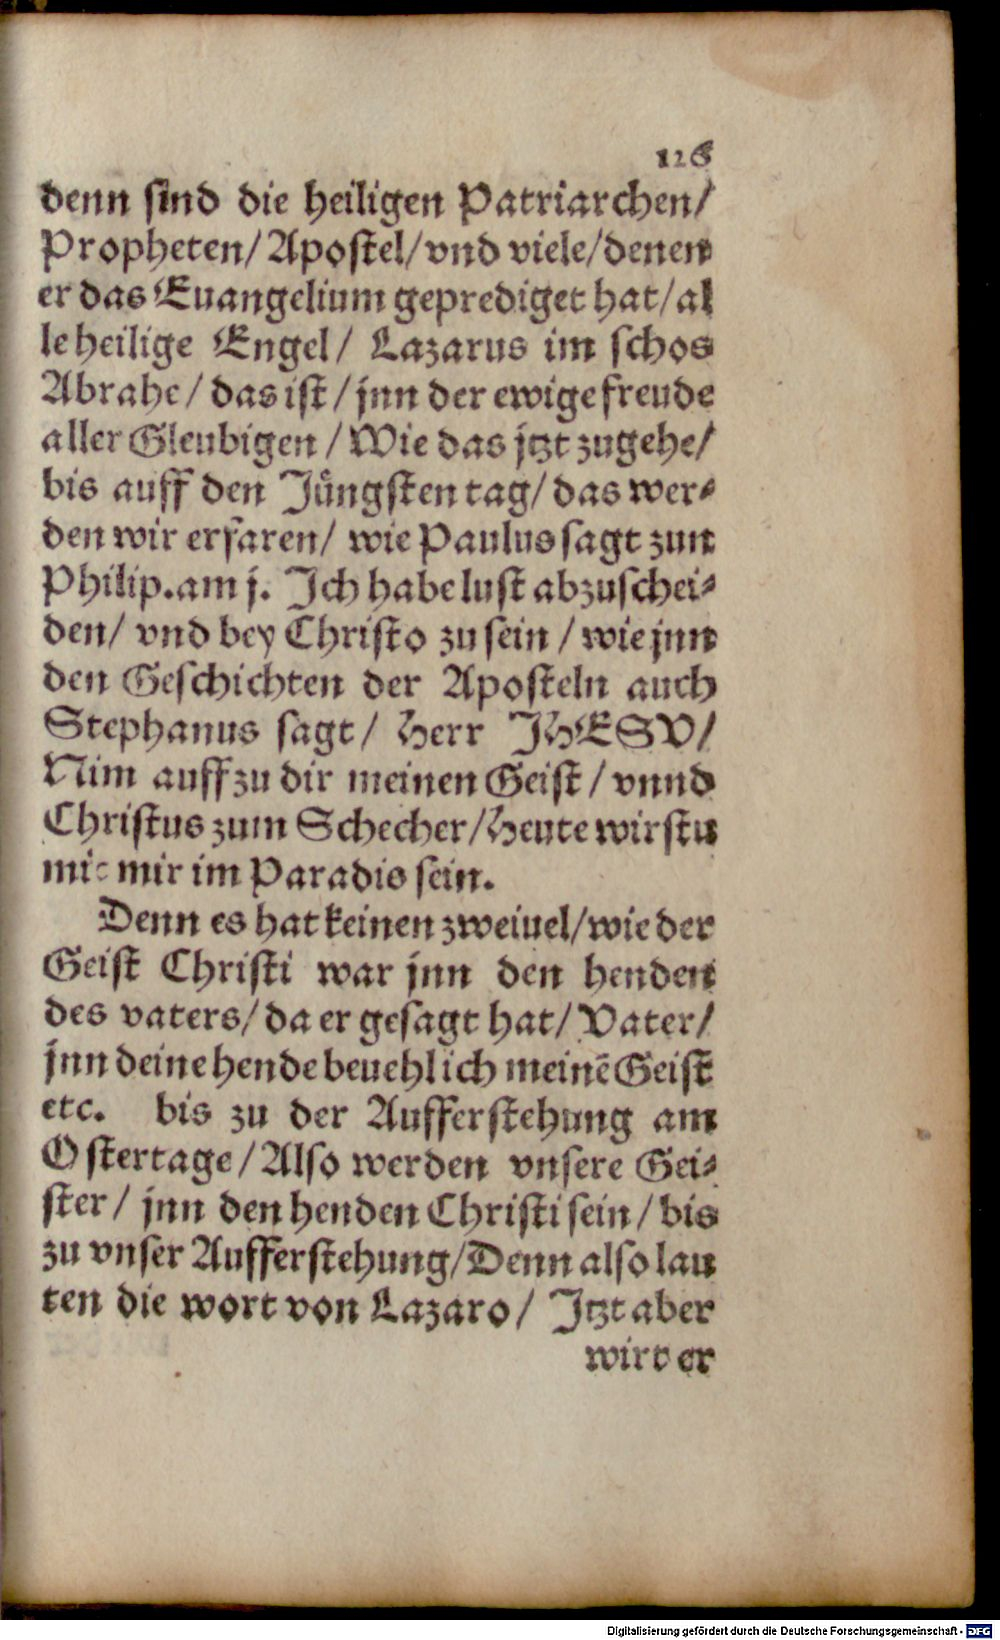 126
denn sind die heiligen Patriarchen/
Propheten/ Apostel/ vnd viele/ denen
er das Euangelium geprediget hat/ al
le heilige Engel/ Lazarus im schos
Abrahe/ das ist/ jnn der ewige freude
aller Gleubigen/ Wie das jtzt zugehe/
bis auff den Jüngsten tag/ das wer⸗
den wir erfaren/ wie Paulus sagt zun
Philip. am j. Ich habe lust abzuschei⸗
den/ vnd bey Christo zu sein/ wie jnn
den Geschichten der Aposteln auch
Stephanus sagt/ Herr JHESV/
Nim auff zu dir meinen Geist/ vnnd
Christus zum Schecher/ Heute wirstu
mit mir im Paradis sein.
Denn es hat keinen zweiuel/ wie der
Geist Christi war jnn den henden
des vaters/ da er gesagt hat/ Vater/
jnn deine hende beuehl ich meinē Geist
etc. bis zu der Aufferstehung am
Ostertage/ Also werden vnsere Gei⸗
ster/ jnn den henden Christi sein/ bis
zu vnser Aufferstehung/ Denn also lau
ten die wort von Lazaro/ Jtzt aber
wird er
Digitalisierung gefördert durch die Deutsche Forschungsgemeinschaft - DFG